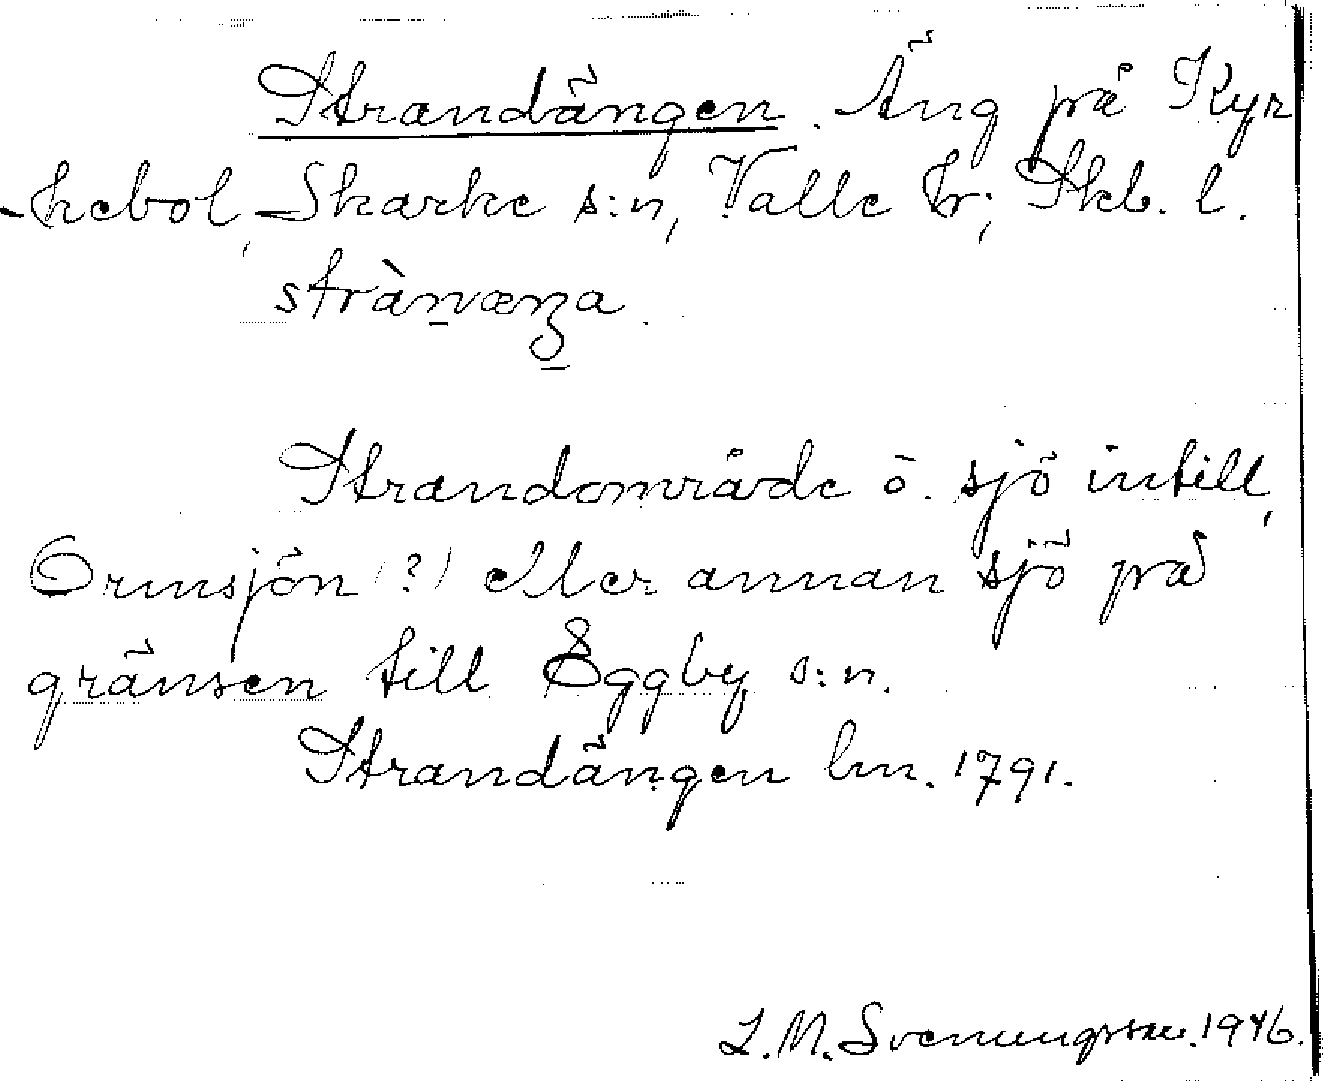 Strandängen. Äng på Kyr
kebol, Skarke s:n, Valle hr; Skb. l.
strànæŋa.
Strandområde ö. sjö intill,
Ormsjön (?) eller annan sjö på
gränsen till Eggby s:n.
Strandängen lm. 1791.
L.M. Svenungsson. 1946.